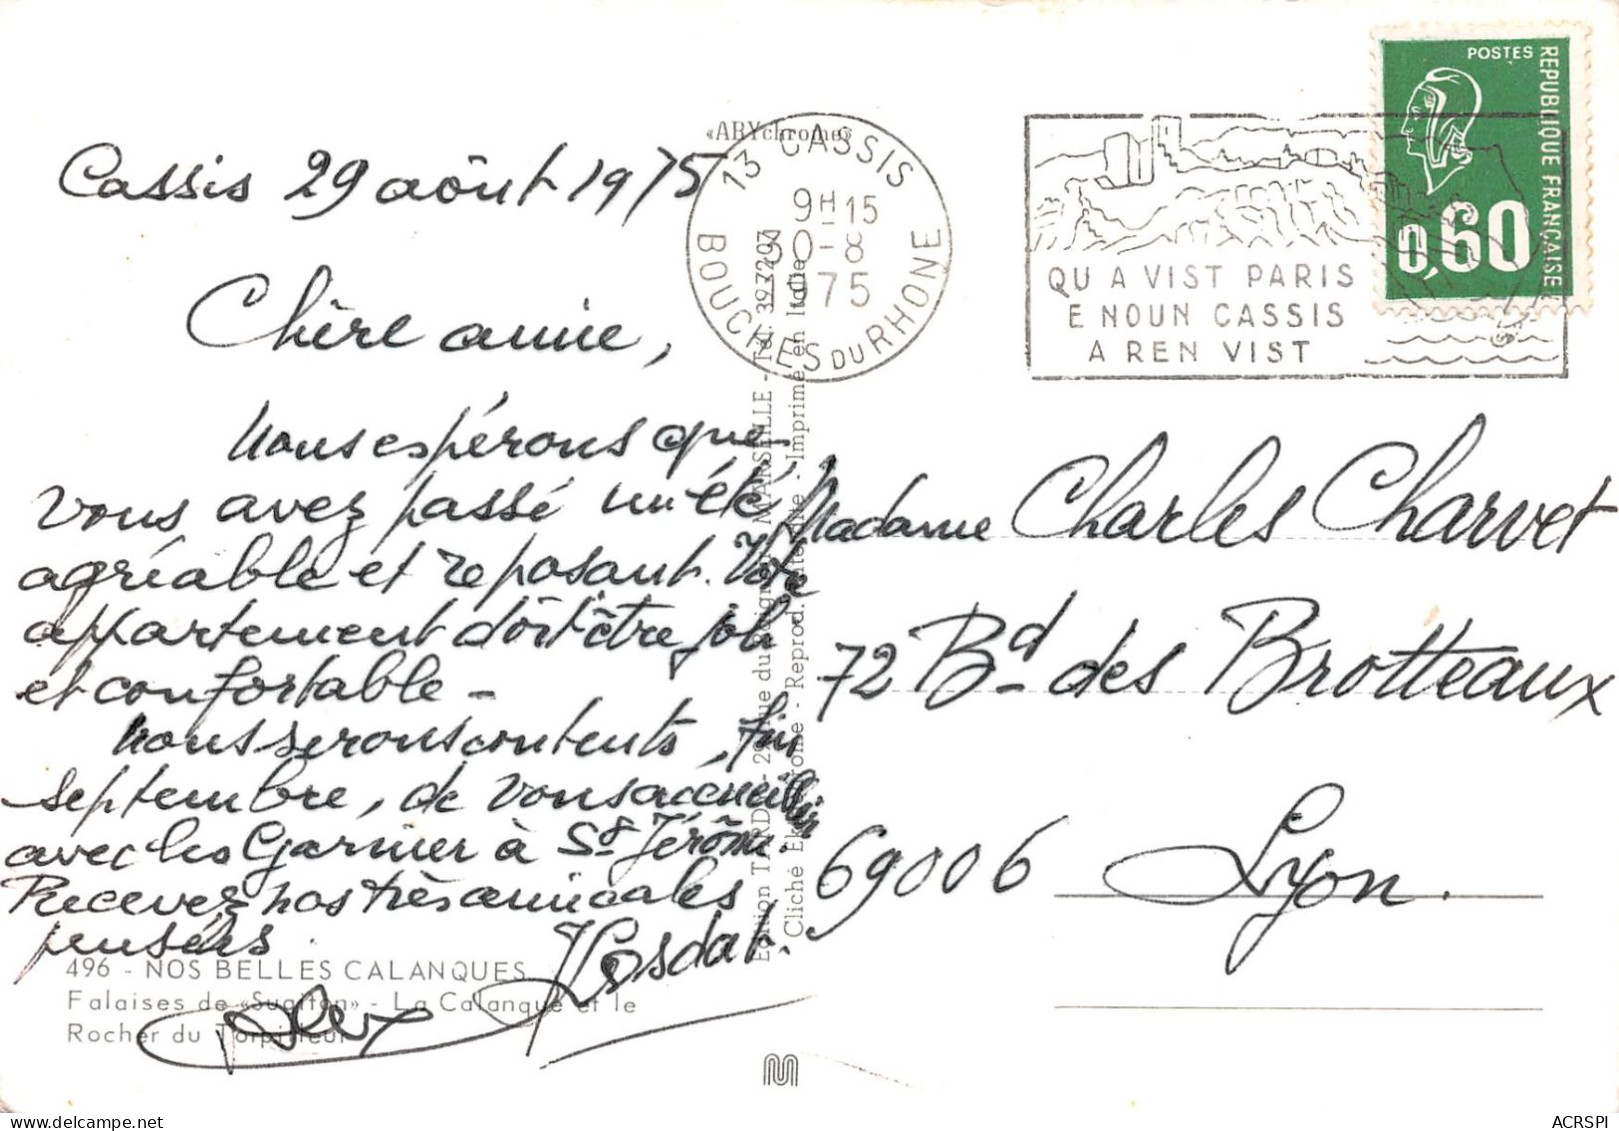 «ARYchrome»
Cassis 29 aôut 1975
Chère amie,
Nous espérons que
vous avez passé un été
agréable et reposant. Votre
appartement doit être joli
et confortable -
Nous serons contents, fin
septembre, de vous accueillir
avec les Garnier à St Jérôme.
Recevez nos très amicales
pensées.
496 - NOS BELLES CALANQUES
Falaises de «Sugiton» - La Calanque et le
Rocher du Torpilleur
13 CASSIS
9H15
30-8
1975
BOUCHES DU RHONE
QU A VIST PARIS
E NOUN CASSIS
A REN VIST
POSTES
REPUBLIQUE FRANÇAISE
0,60
Edition TARDY - 29 rue du MARSEILLE - Tél. 397207
Cliché Ektachrome - Reprod. interdite - Imprimé en Italie
Madame Charles Charvet
72 Bd des Brotteaux
69006 Lyon.
delcampe.net
ACRSPI